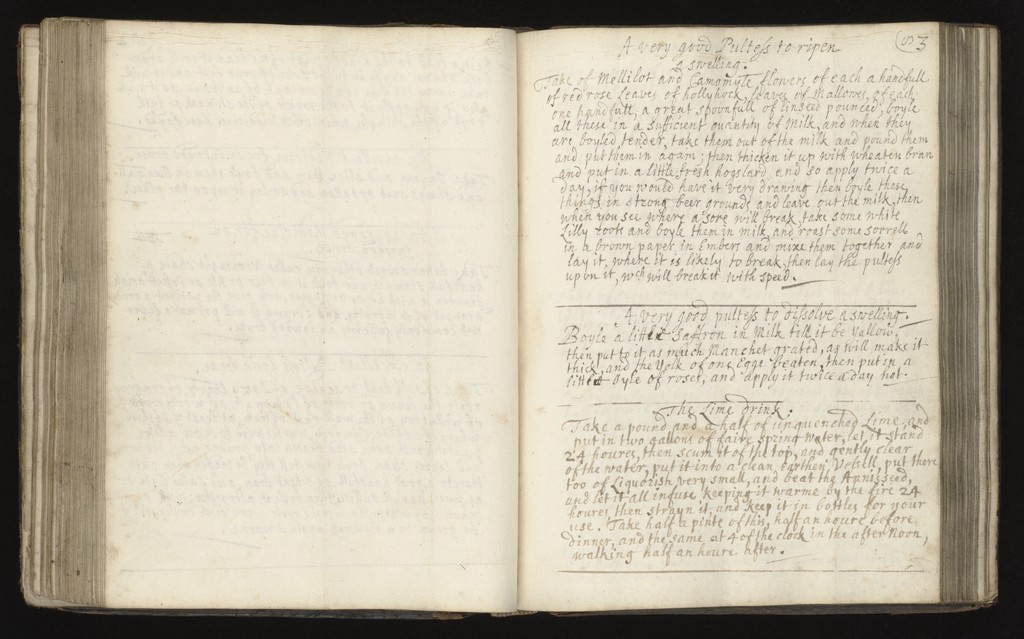 83
A very good Pultess to ripen
a swelling.
Take of Mellilot and Camomyle flowers, of each a handfull
of red rose leaves of hollyhock leaves of Mallowes, of each
one handfull, a great spoonfull of Linseed pounced, boyle
all these in a sufficient quantity of Milk, and when they
are boyled tender, take them out of the milk and pound them
and put them in again; then thicken it up with wheaten bran
and put in a little fresh hogslard, and so apply twice a
day, if you would have it very drawing then boyle these
things in strong beer grounds and leave out the milk, then
when you see where a sore will break, take some white
Lilly roots and boyle them in milk, and roast some sorrell
in a brown paper in Embers and mixe them together and
lay it, where it is likely to break, then lay the pultess
upon it, wch will break it with speed.
A very good pultess to dissolve a swelling.
Boyle a little Saffron in Milk till it be yallow,
then put to it as much Manchet grated, as will make it
thick, and the yolk of one Egge beaten, then put in a
little oyle of roses, and apply it twice a day hot.
The Lime drink.
Take a pound and a half of unquenched Lime, and
put in two gallons of faire spring water, let it stand
24 houres, then scum it of the top, and gently clear
of the water, put it into a clean Earthen Vessell, put there
too of Liquorish very small, and beat the Anniseed,
and let it all infuse keeping it warme by the fire 24
houres, then strayn it, and keep it in bottles for your
use. Take half a pinte of this, half an houre before
dinner, and the same at 4 of the clock in the after noon,
walking half an houre after.